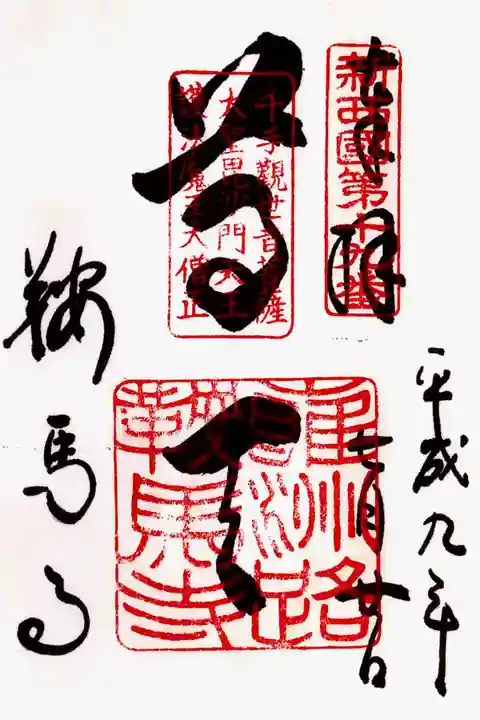 奉拝
新西國第十九番
平成九年
七月廿日
尊天
千手觀世音菩薩
大聖毘沙門天王
護法魔王大僧正
雍州路
鞍馬寺
鞍馬寺